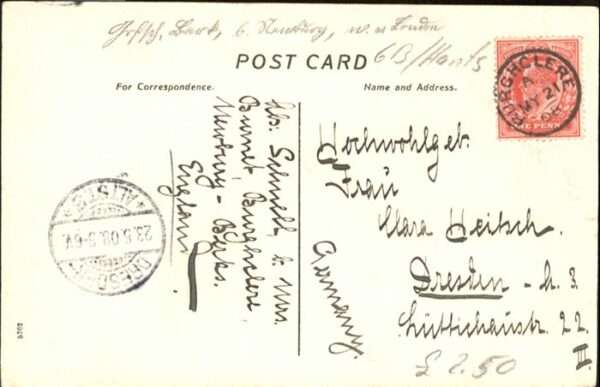 Grfsch. Berk, b. Newbury, w. v. London
6B/Hants
POST CARD
For Correspondence.
Name and Address.
BURGHCLERE
A
MY 21
08
ONE PENNY
Abs. Schnell, b. Mrs.
Burnet, Burghclere,
Newbury - Berks.
England
Hochwohlgeb.
Frau
Clara Heitsch.
Dresden - A. 3
Lüttichaustr. 22
II.
Germany.
DRESDEN
ALTST.
23.5.08. 5-6V.
£ 2.50